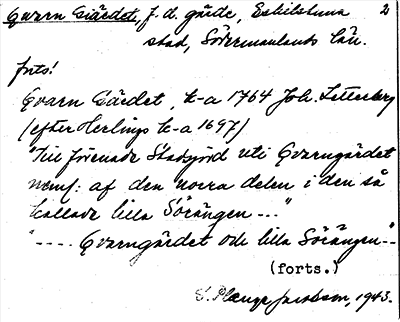 Qvarn Giärdet, f.d. gärde, Eskilstuna 2
stad, Södermanlands län.
forts!
Qvarn Gärdet, k-a 1764 Joh. Zetterberg
(efter Herlings k-a 1697)
"Till förenade Stadsjord uti Qvarngärdet
nemf: af den norra delen i den så
kallade lilla Sörängen ---"
"---- Qvarngärdet och lilla Sörängen--
(forts.)
S. Plenge Jacobson, 1943.